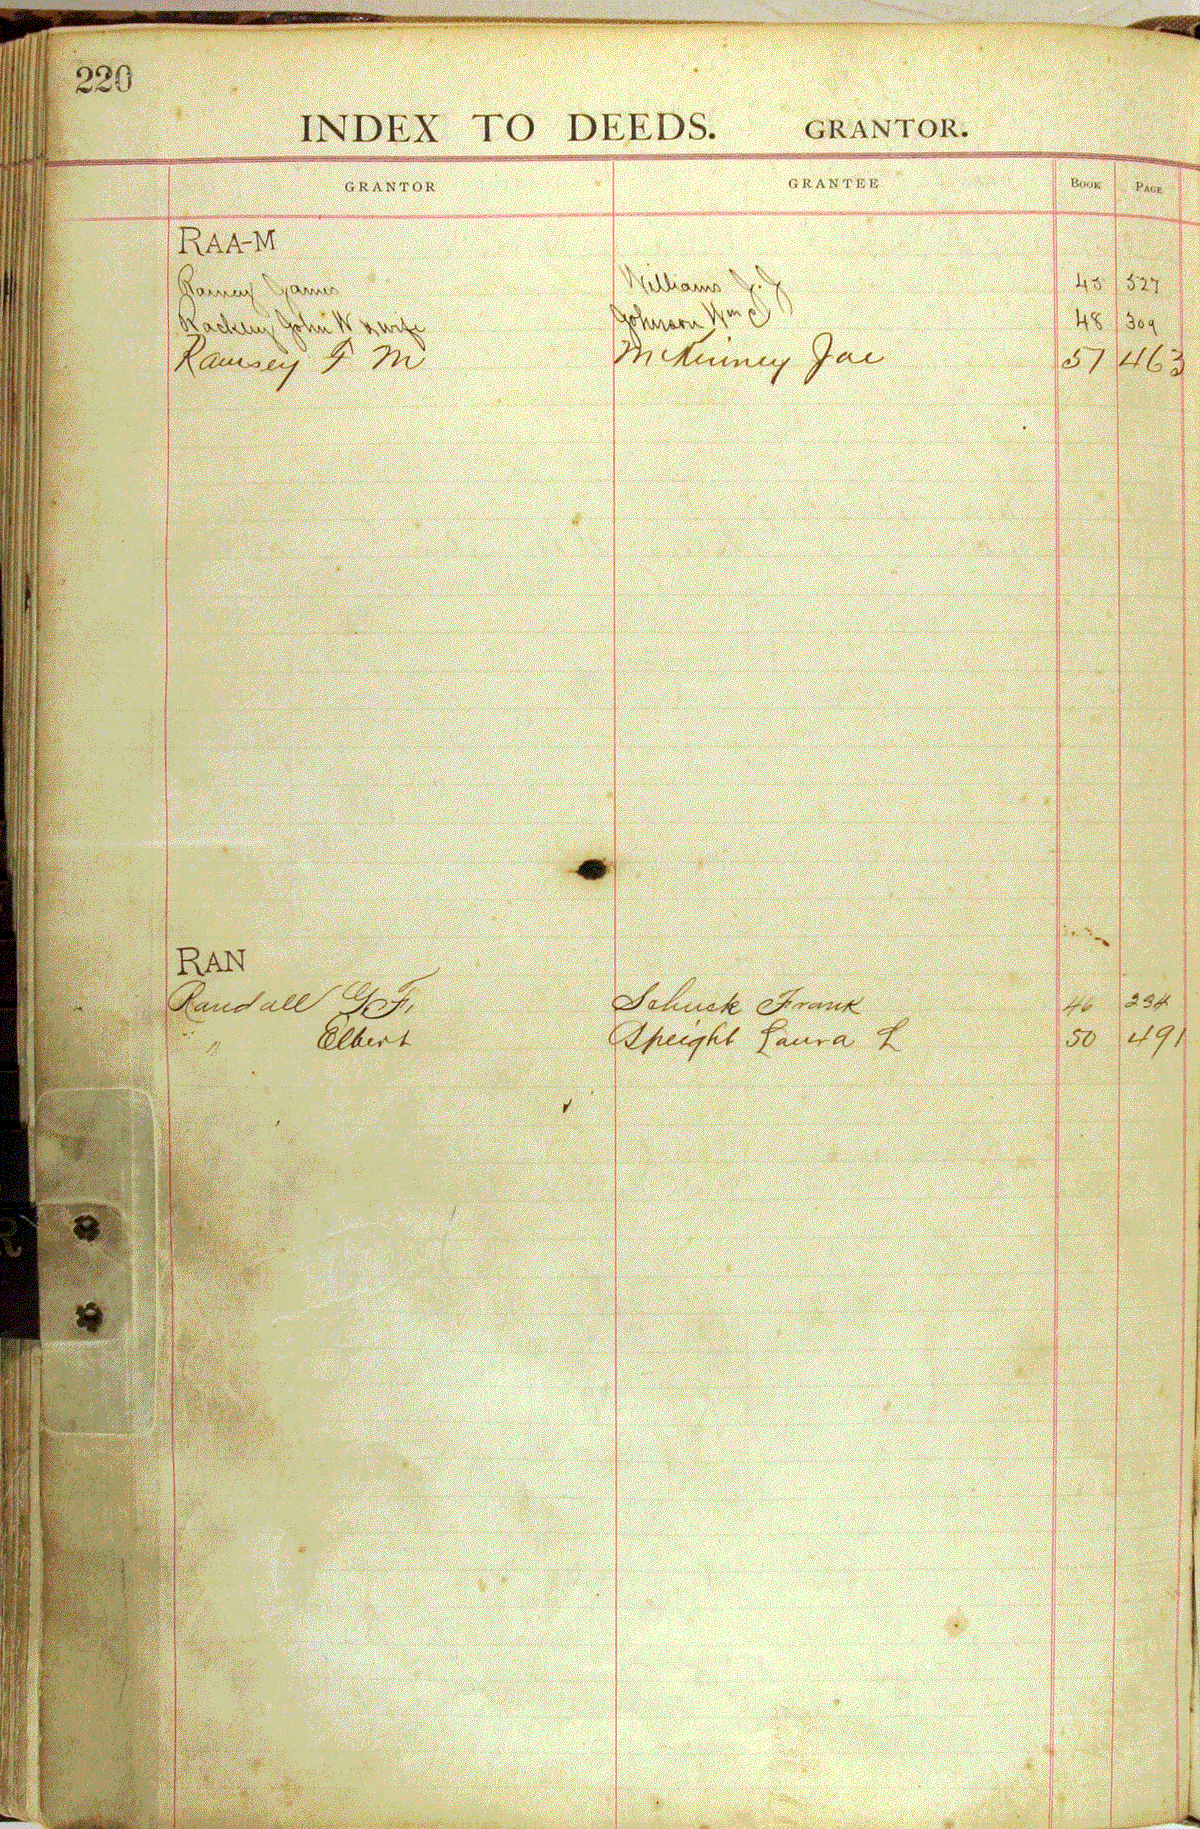 220
INDEX TO DEEDS. GRANTOR.
GRANTOR GRANTEE BOOK PAGE
RAA-M
Ramey James Williams J. J 45 527
Rackley John W & wife Johnson Wm C 48 309
Ramsey F M McKinney Joe 57 463
RAN
Randall G. F. Schuck Frank 46 234
" Elbert Speight Laura L 50 491